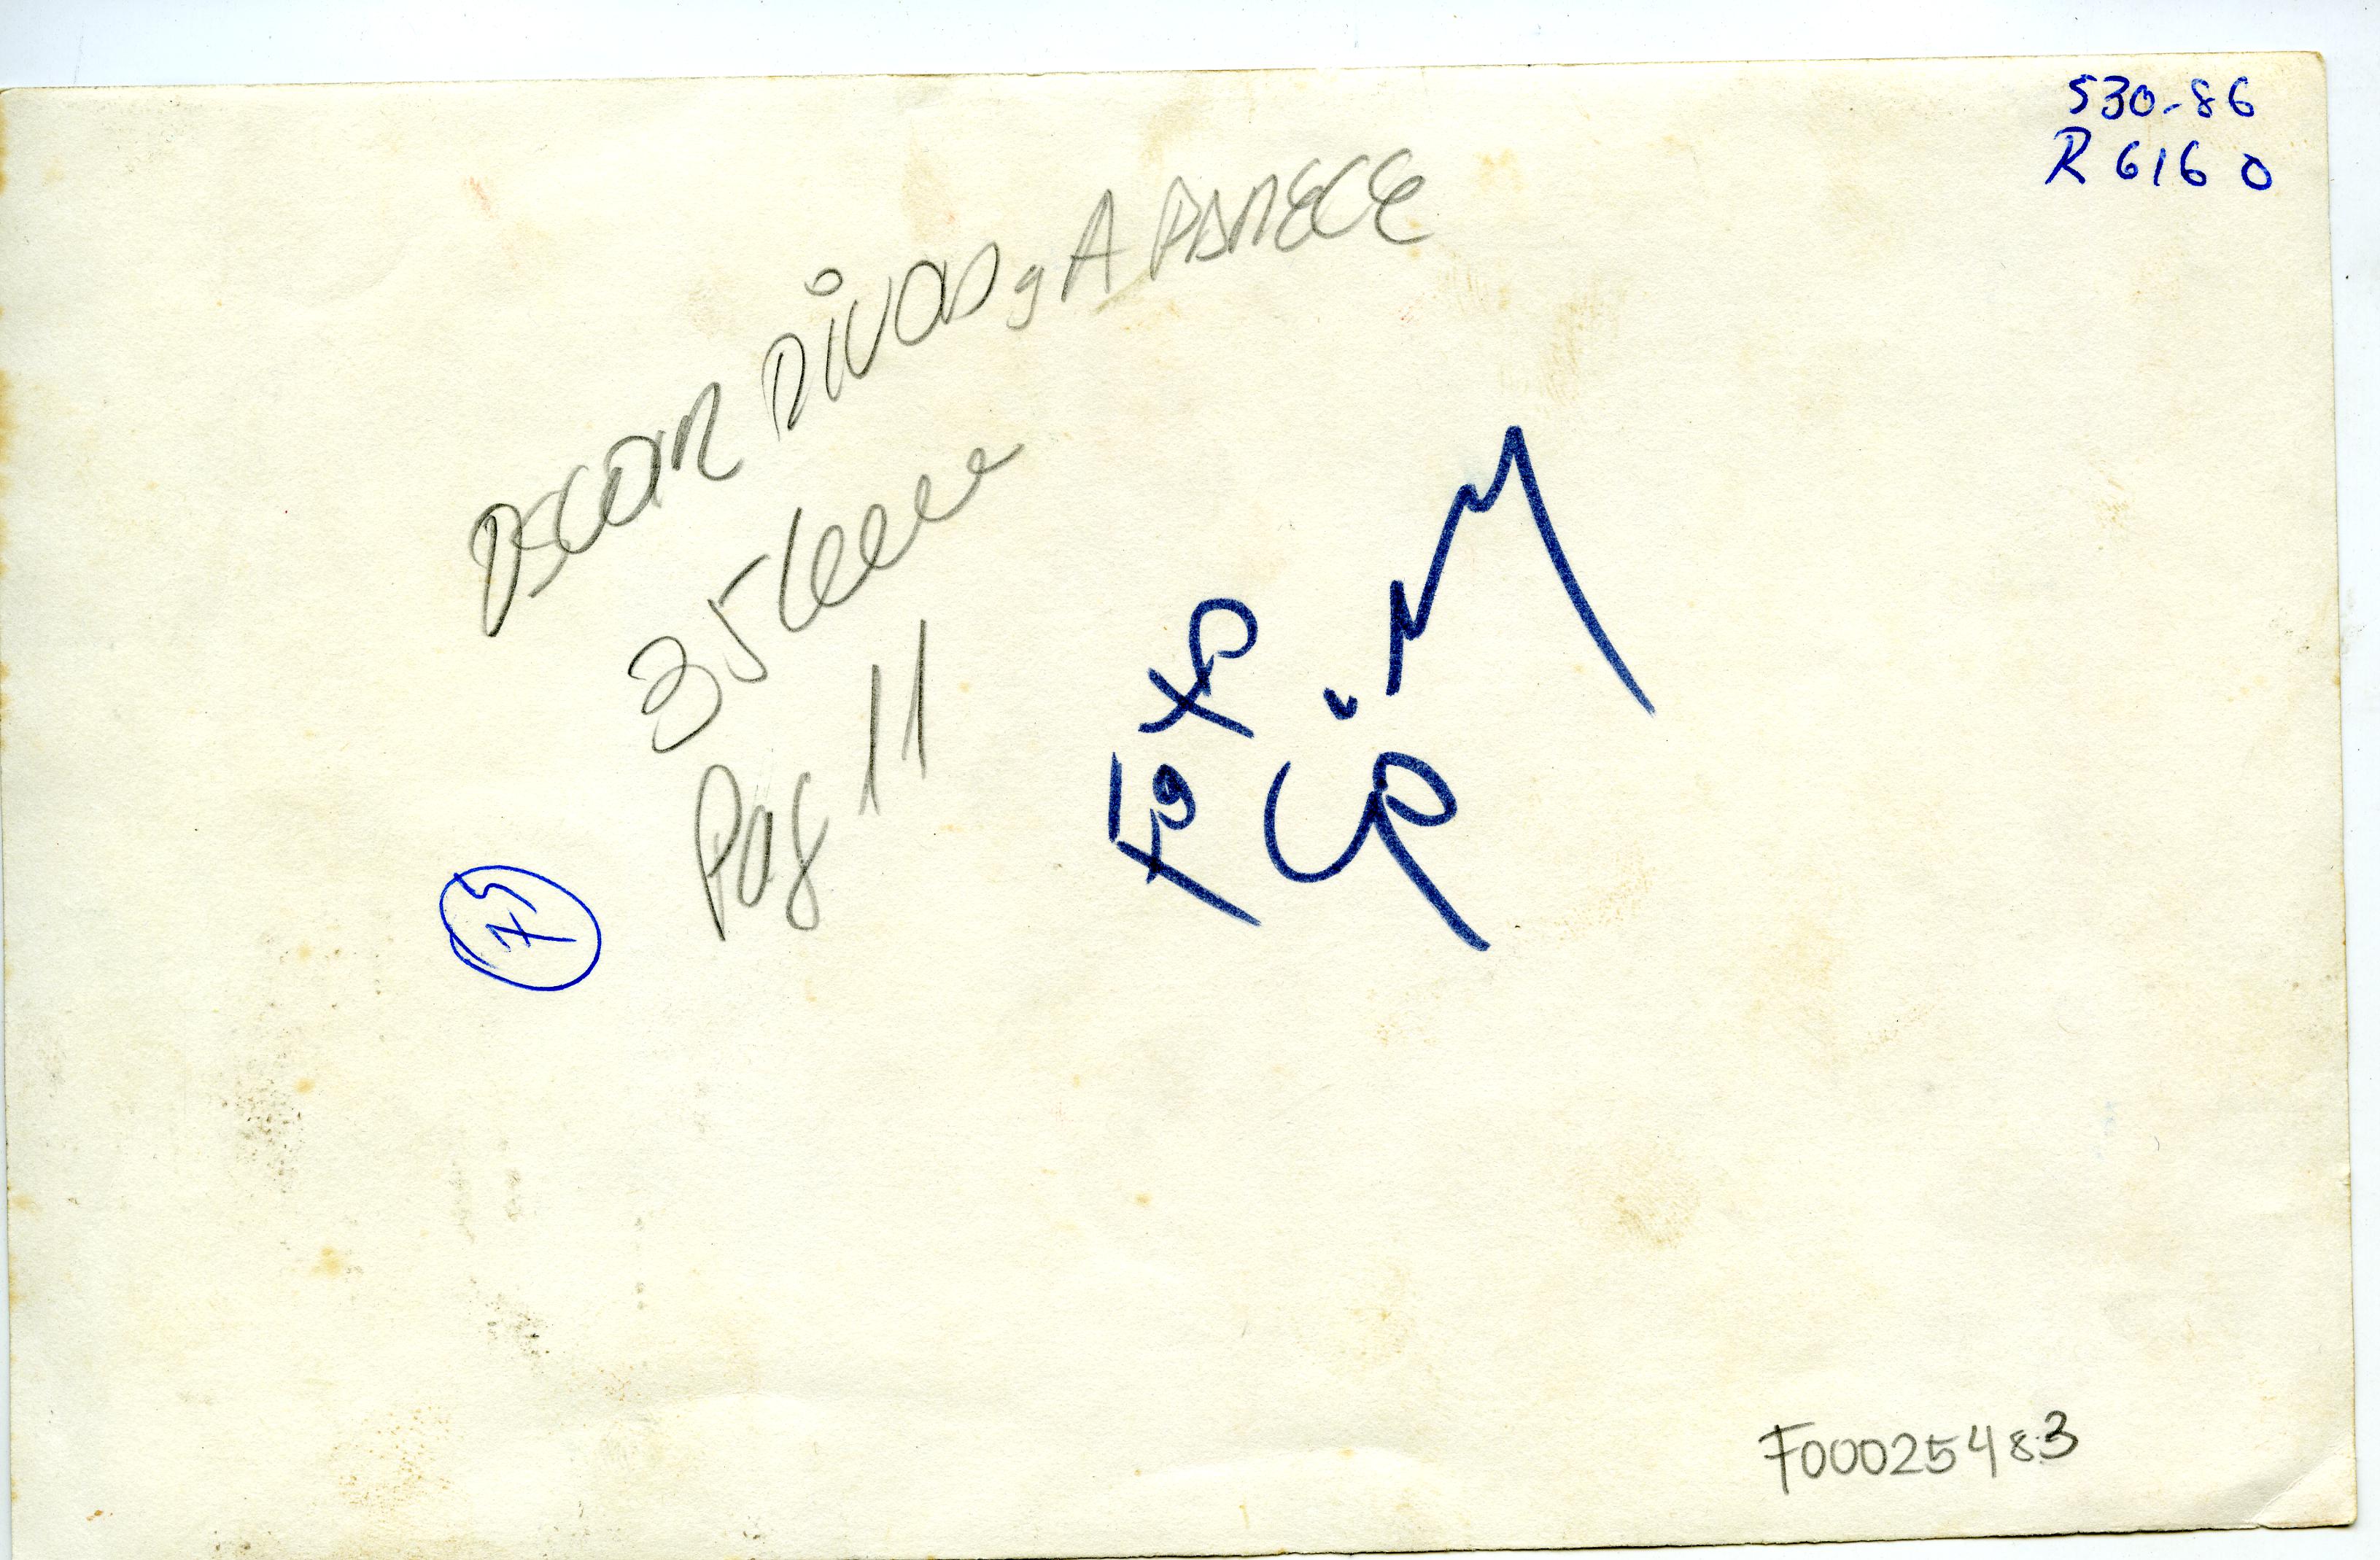 530-86
R 6160
OSCAR RIVAS y APARECE
35
Pag 11
75
Foto
F00025483